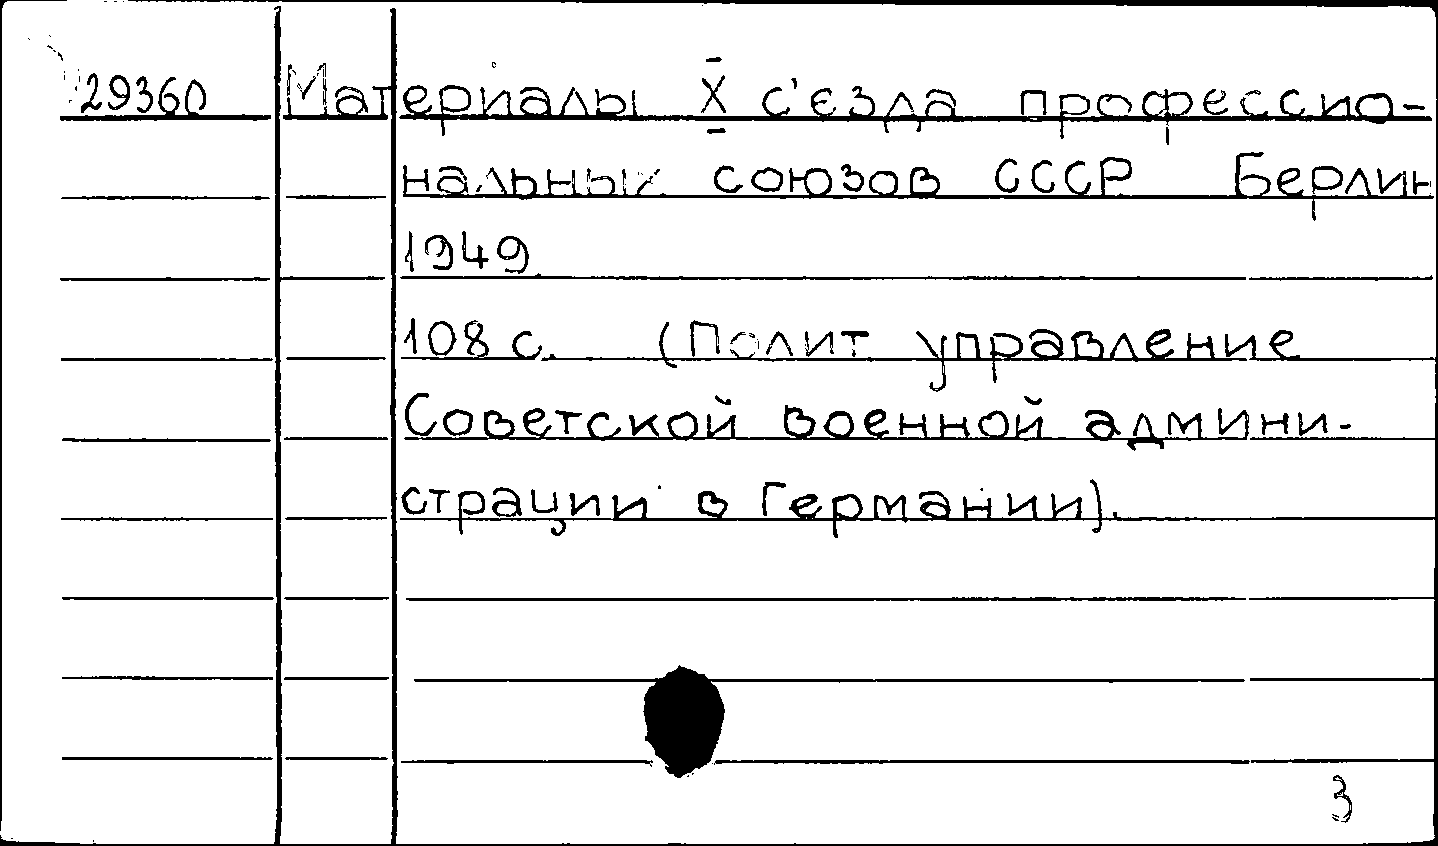 29360 Материалы X с'єзда профессио-
нальных союзов СССР Берлин
1949
108 с. (Полит управление
Советской военной админи-
страции в Германии).
3